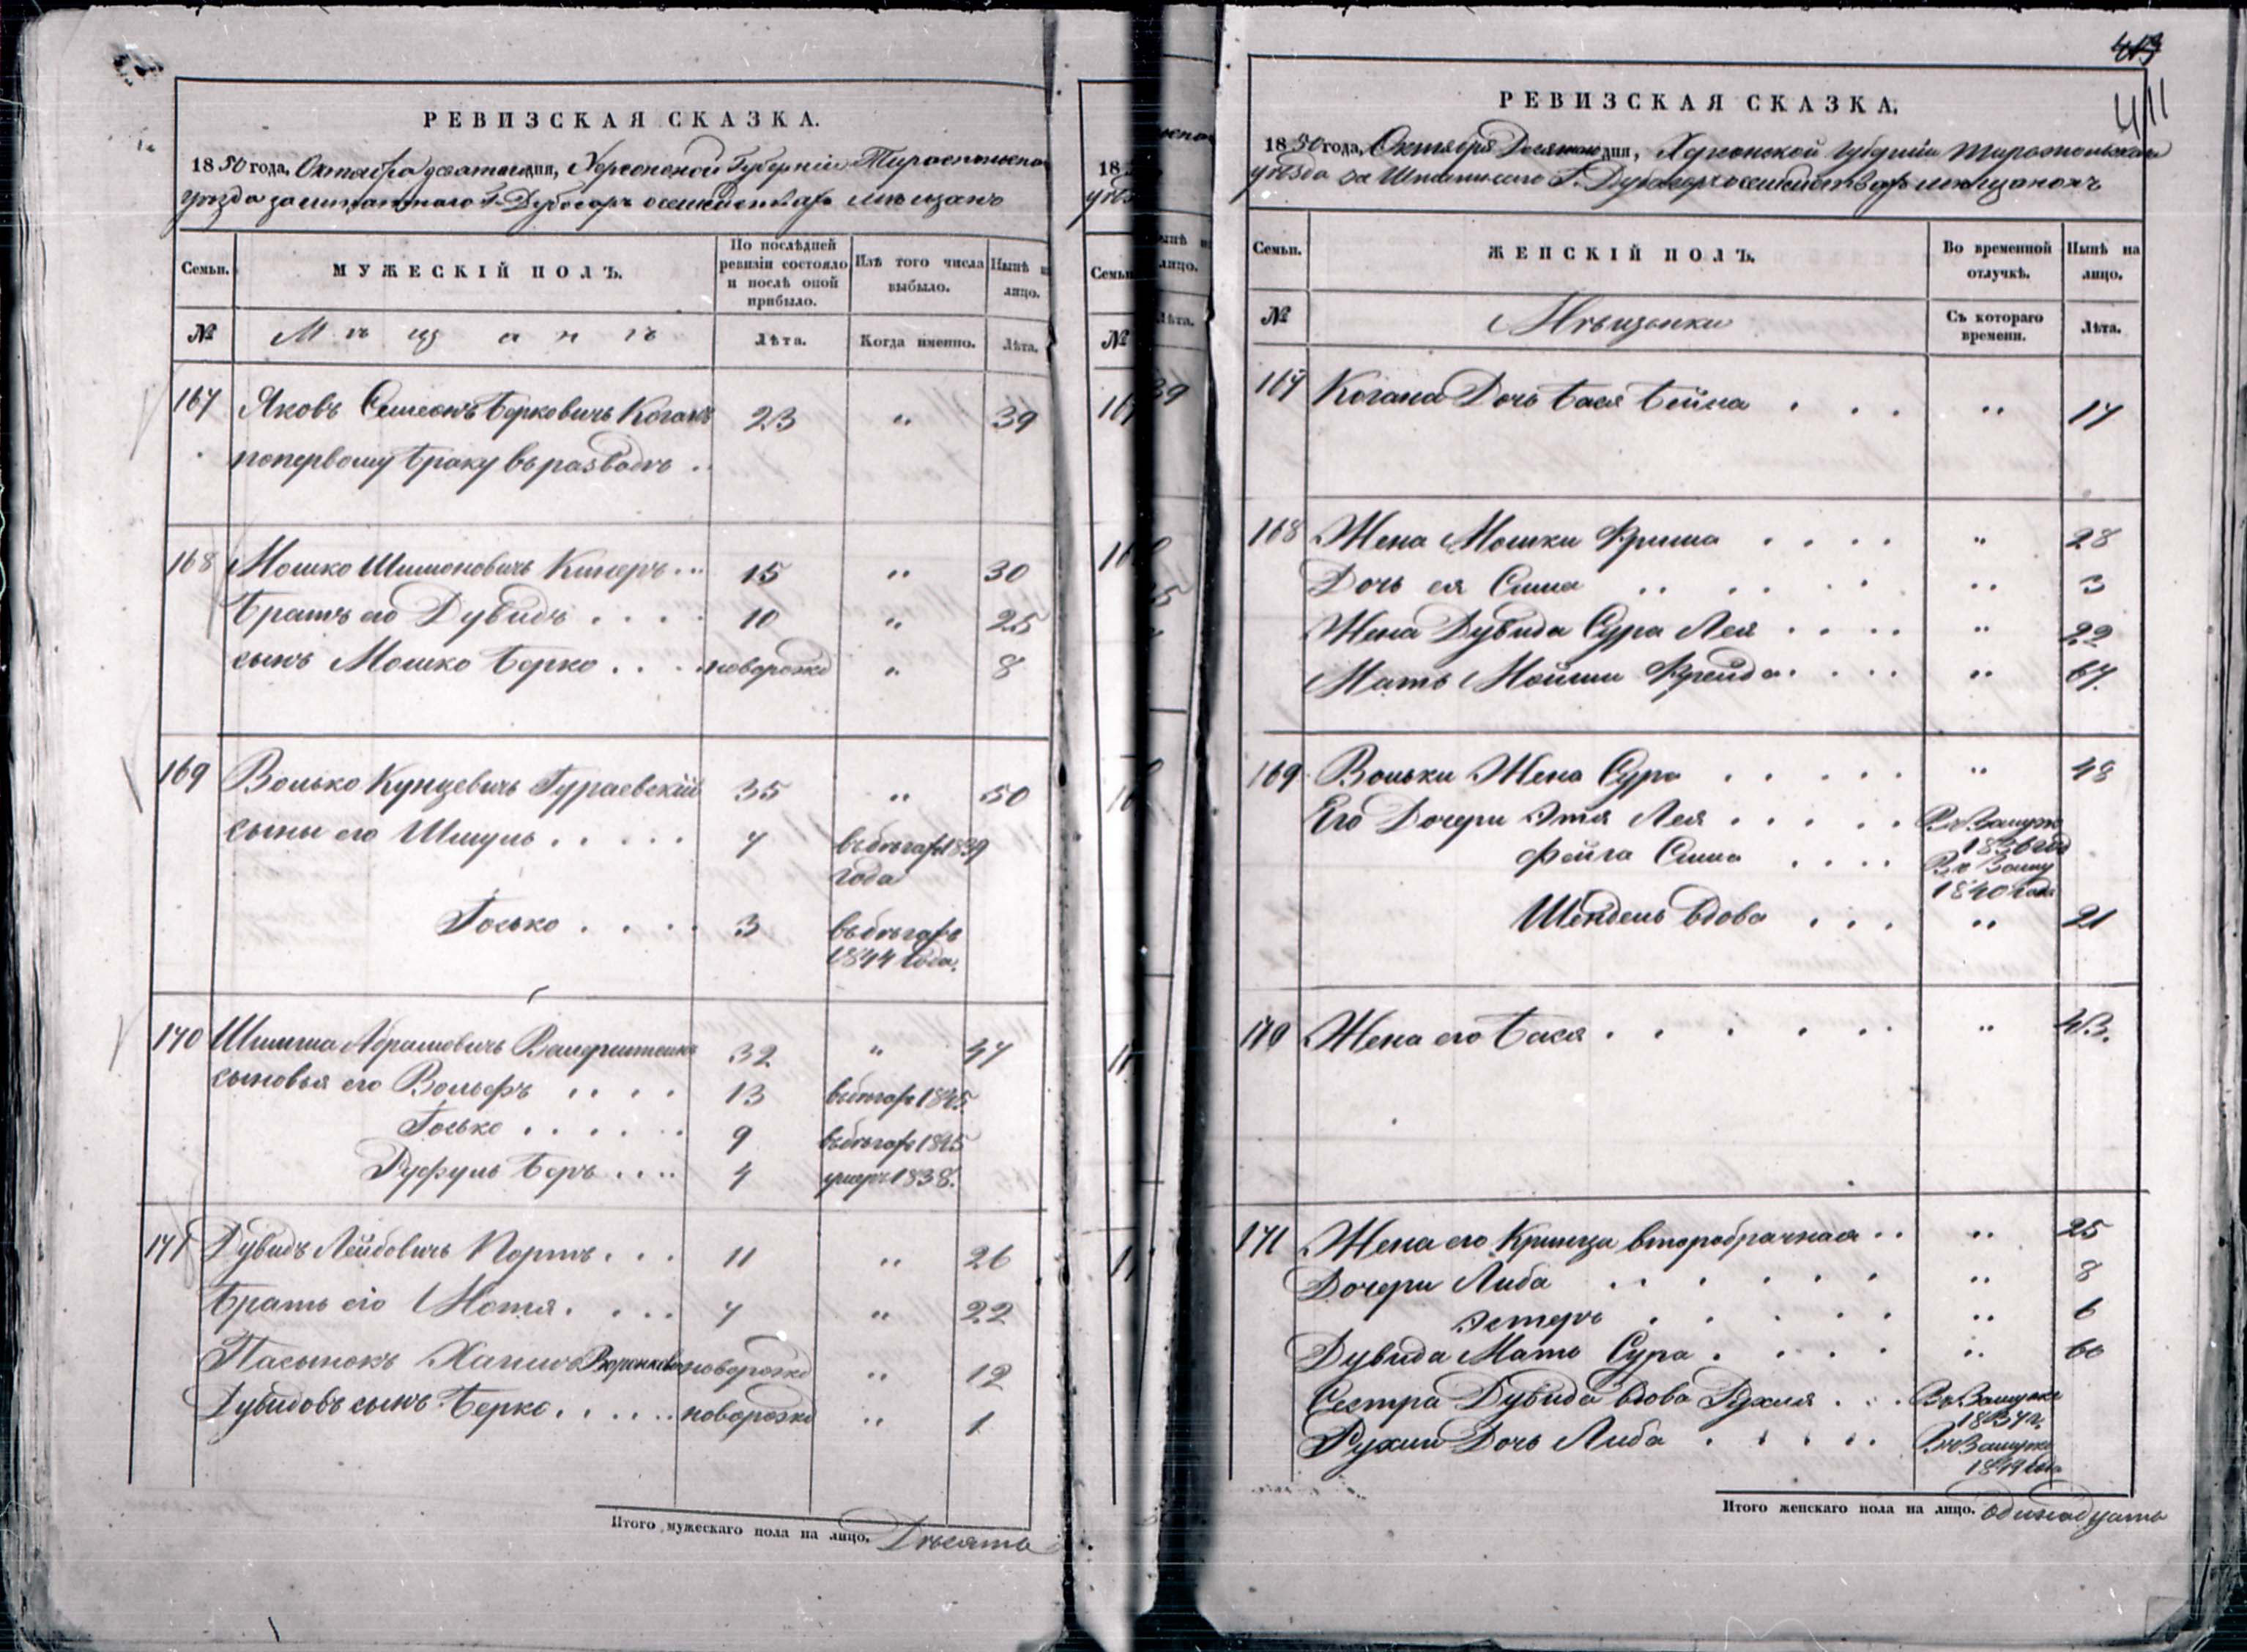 РЕВИЗСКАЯ СКАЗКА.
1850 года, Октября десятаго дня, Херсонской Губерніи Тираспольскаго
уезда заштатнаго г. Дубосаръ о мещанъ
Семьи.
МУЖЕСКІЙ ПОЛЪ.
По послѣдней ревизіи состояло и послѣ оной прибыло.
Изъ того числа выбыло.
Нынѣ на лицо.
№
Мѣщанъ
Лѣта.
Когда именно.
Лѣта.
167 Яковъ Симеонъ Берковичь Коганъ 23 " 39
попервому браку въ разводѣ ..
168 Мошко Шимоновичь ... 15 " 30
Братъ его Дувидъ . . . . 10 " 25
сынъ Мошко Берко . . . новорожд " 8
169 Волько Гураевскій 35 " 50
сыны его Шмуль . . . . . 7 въбѣгахъ 1839
года
Іосько . . . . 3 въбѣгахъ
1844 года.
170 Шимша Абрамовичь 32 " 47
сыновья его Вольфъ . . . . 13 вбѣгахъ 1845
Іосько . . . . . . 9 въбѣгахъ 1845
Беръ . . . . 4 умеръ 1838.
171 Дувидъ Лейбовичь Портъ . . . 11 " 26
Братъ его Мотя . . . . 7 " 22
Пасынокъ новорожд " 12
Дувидовъ сынъ Берко . . . . . новорожд " 1
Итого мужескаго пола на лицо. Дѣсять
18
Семьи
№
413
411
РЕВИЗСКАЯ СКАЗКА.
1850 года, Октября Десятаго дня, Херсонской губерніи Тираспольскаго
уѣзда заштатнаго г. мещанокъ
Семьи.
ЖЕНСКІЙ ПОЛЪ.
Во временной отлучкѣ.
Нынѣ на лицо.
№
Мѣщанки
Съ котораго времени.
Лѣта.
167 Когана Дочь Бася Бейла . . . " 17
168 Жена Мошки Фрима . . . . " 28
Дочь ея Сима . . . . . " 3
Жена Дувида Сура Лея . . . . " 22
Мать Мойши Фрейда . . . . " 67.
169 Вольки Жена Сура . . . . . " 48
Его Дочери Этя Лея . . . . . Въ Замуж
1836 год
Фейга Сима . . . . Въ Заму
1840 года
Шейндель вдова . . . " 21
170 Жена его Бася . . . . . . " 43.
171 Жена его второбрачная .. " 25
Дочери Либа . . . . . . " 8
Эстеръ . . . . . " 6
Дувида Мать Сура . . . . " 60
Сестра Дувида вдова Рухля . . . Въ Замуже
1837 г.
Рухли Дочь Либа . . . . . Въ Замуже
1849 года
Итого женскаго пола на лицо. одинадцать